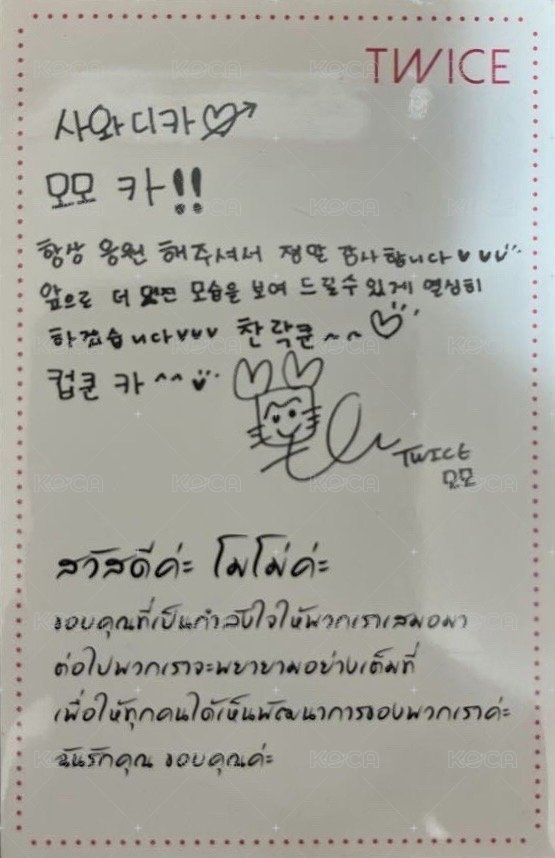 TWICE
사와디카♡
모모 카!!
항상 응원 해주셔서 정말 감사합니다♥♥♥
앞으로 더 멋진 모습을 보여 드릴수 있게 열심히
하겠습니다♥♥♥ 찬락쿤~~♡
컵쿤 카^^♥
TWICE
모모
สวัสดีค่ะ โมโม่ค่ะ
ขอบคุณที่เป็นกำลังใจให้พวกเราเสมอมา
ต่อไปพวกเราจะพยายามอย่างเต็มที่
เพื่อให้ทุกคนได้เห็นพัฒนาการของพวกเราค่ะ
ฉันรักคุณ ขอบคุณค่ะ